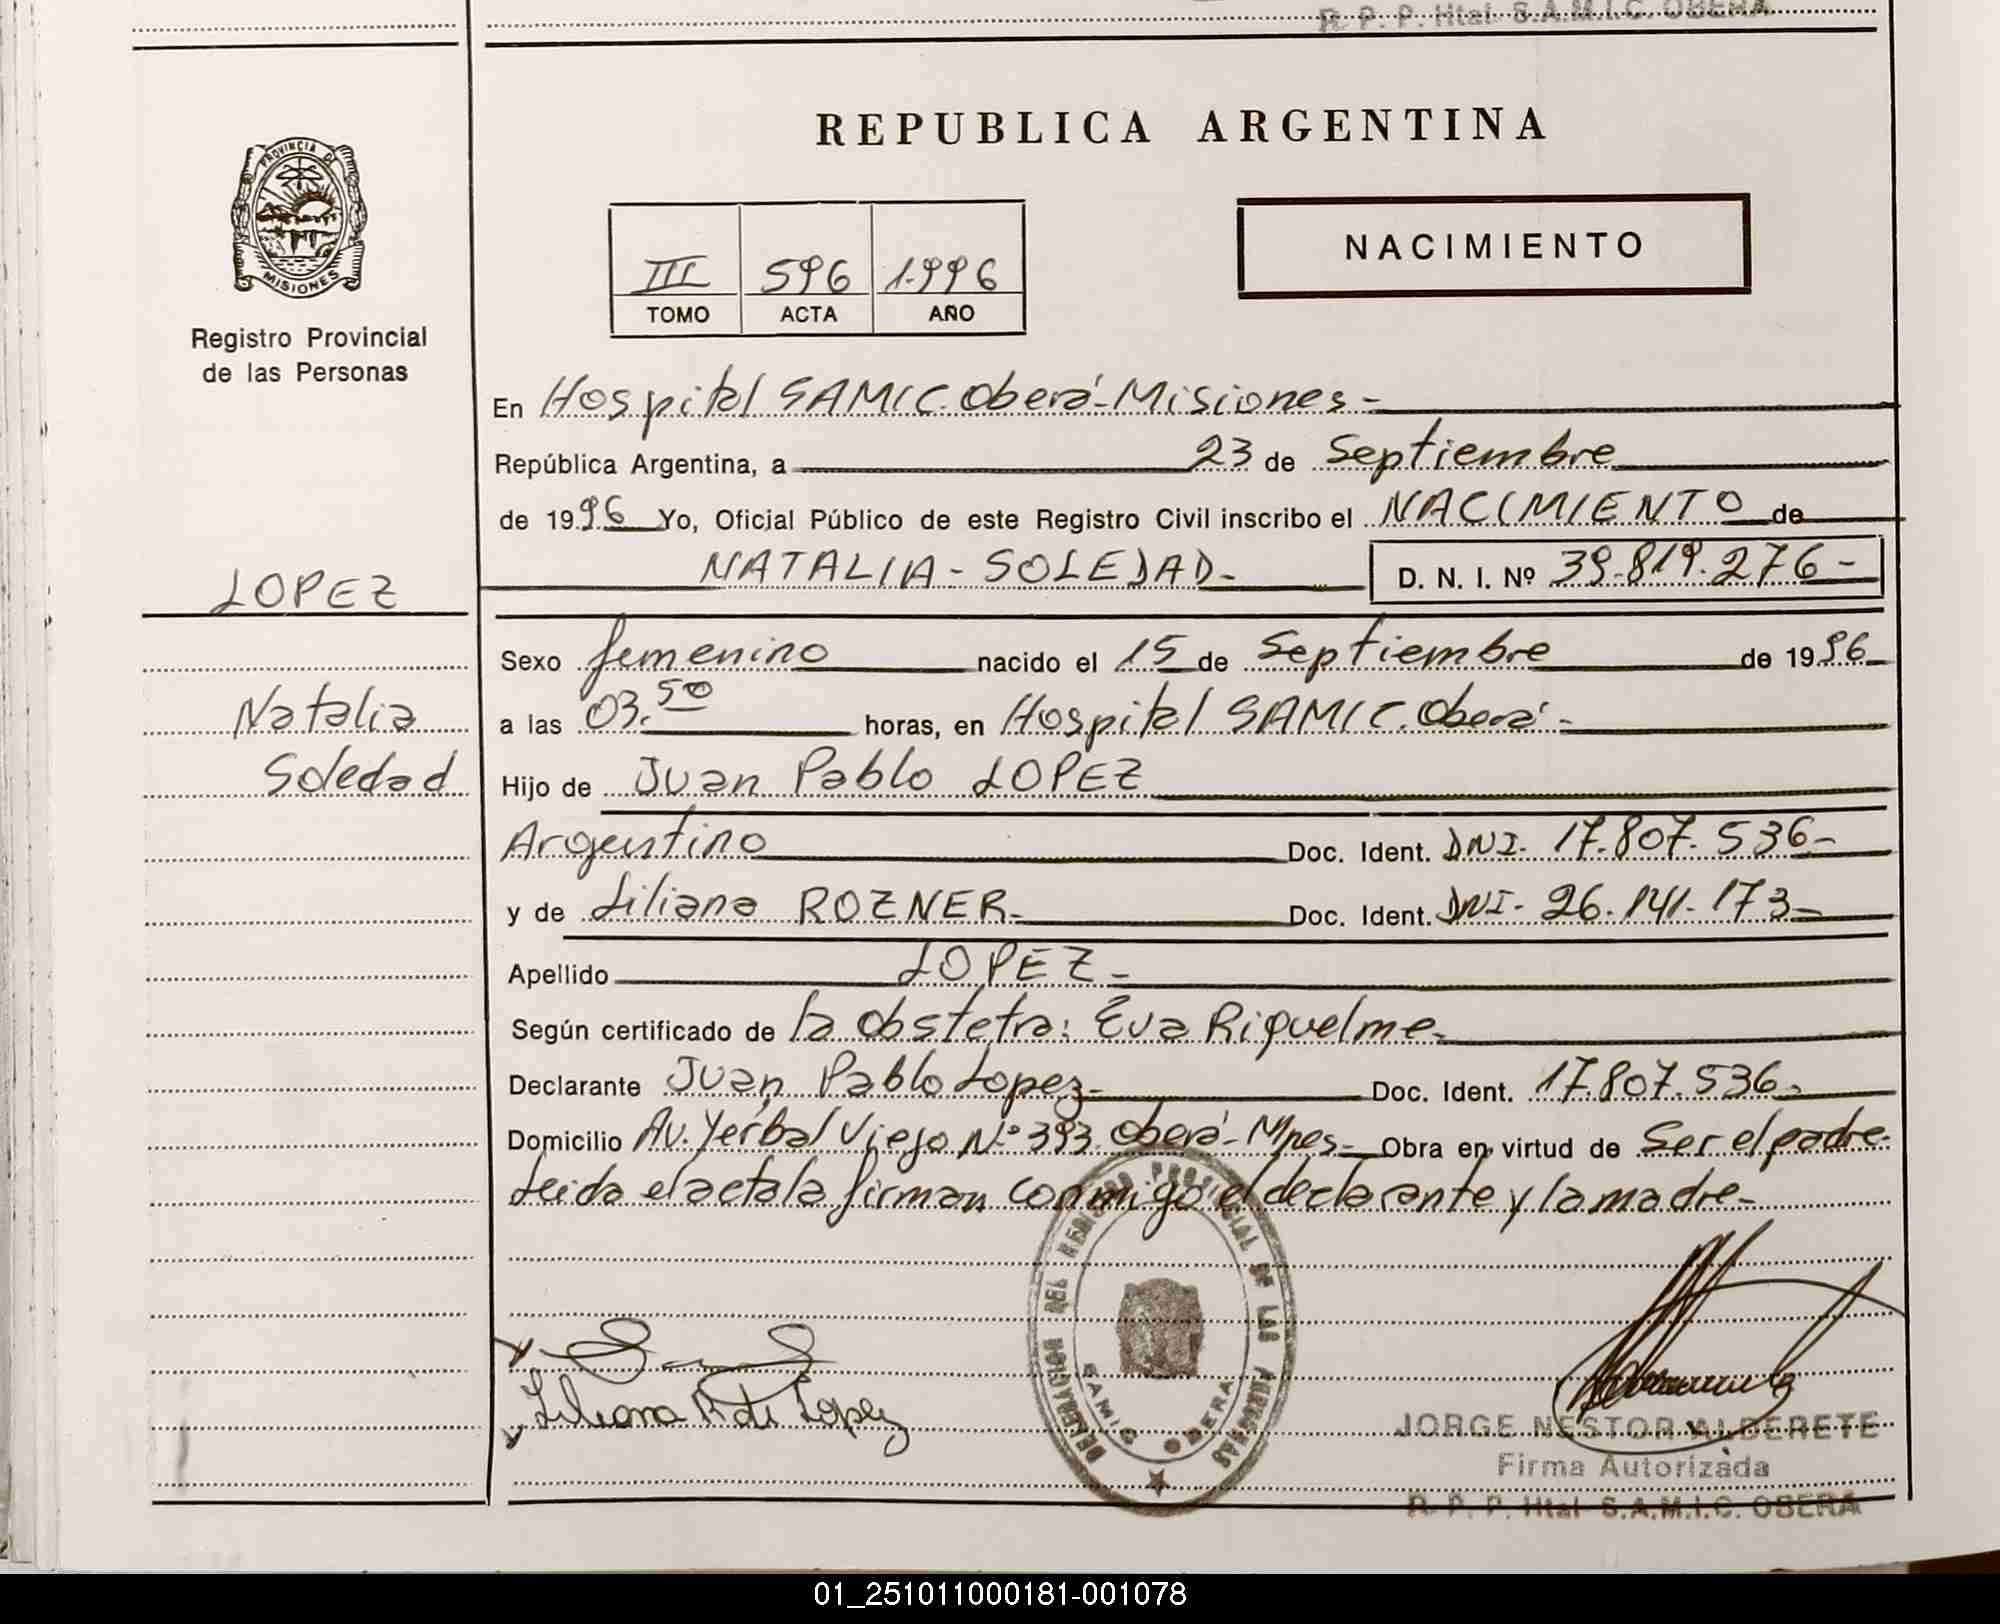 R. P. P. Htal S.A.M.I.C. OBERA
REPUBLICA ARGENTINA
PROVINCIA DE
MISIONES
Registro Provincial
de las Personas
III 596 1.996
TOMO ACTA AÑO
NACIMIENTO
En Hospital SAMIC. Oberá - Misiones -
República Argentina, a 23 de Septiembre
de 1996 Yo, Oficial Público de este Registro Civil inscribo el NACIMIENTO de
NATALIA - SOLEDAD - D. N. I. Nº 39.819.276 -
LOPEZ
Natalia
Soledad
Sexo femenino nacido el 15 de Septiembre de 1996
a las 03.50 horas, en Hospital SAMIC. Oberá -
Hijo de Juan Pablo LOPEZ
Argentino Doc. Ident. DNI - 17.807.536 -
y de Liliana ROZNER - Doc. Ident. DNI - 26.141.173 -
Apellido LOPEZ -
Según certificado de la obstetra: Eva Riquelme -
Declarante Juan Pablo Lopez - Doc. Ident. 17.807.536 -
Domicilio Av. Yerbal Viejo Nº 393. Oberá - Mnes - Obra en virtud de Ser el padre -
Leida el acta la firman conmigo el declarante y la madre -
DELEGACION DEL REGISTRO PROVINCIAL DE LAS PERSONAS
SAMIC OBERA
Liliana R de Lopez
JORGE NESTOR ALDERETE
Firma Autorizada
R. P. P. Htal S.A.M.I.C. OBERA
01_251011000181-001078